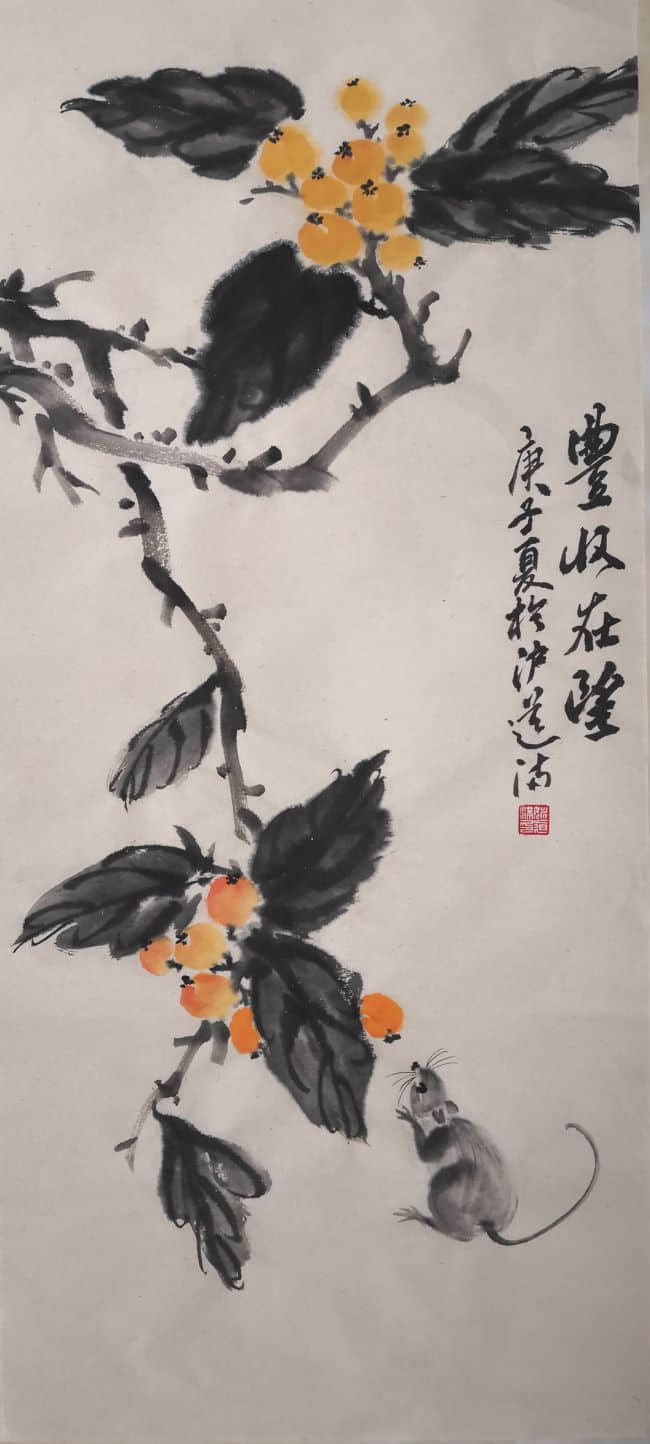 豐收在望
庚子夏於沪道满